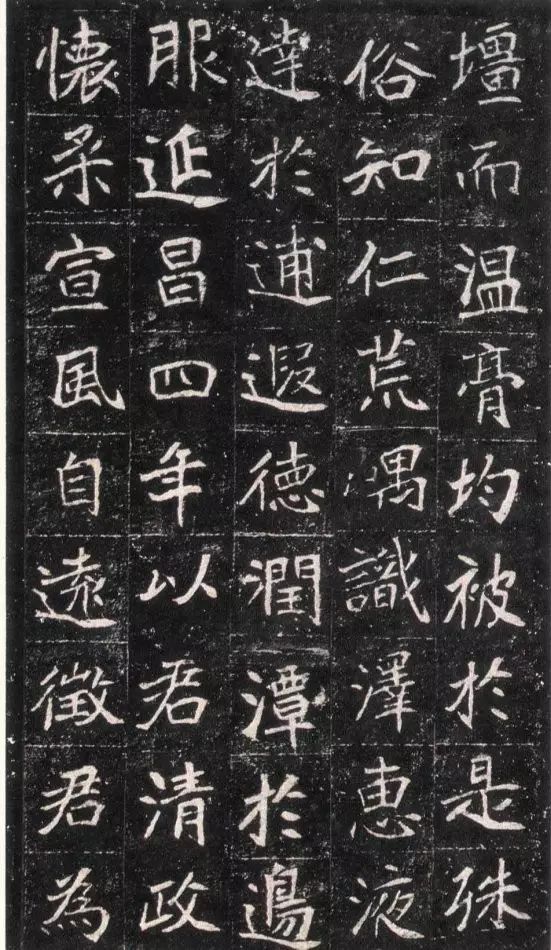 壃而温膏均被於是殊
俗知仁荒隅識澤惠液
達於逋遐德潤潭於邊
服延昌四年以君清政
懷柔宣風自遠徵君為